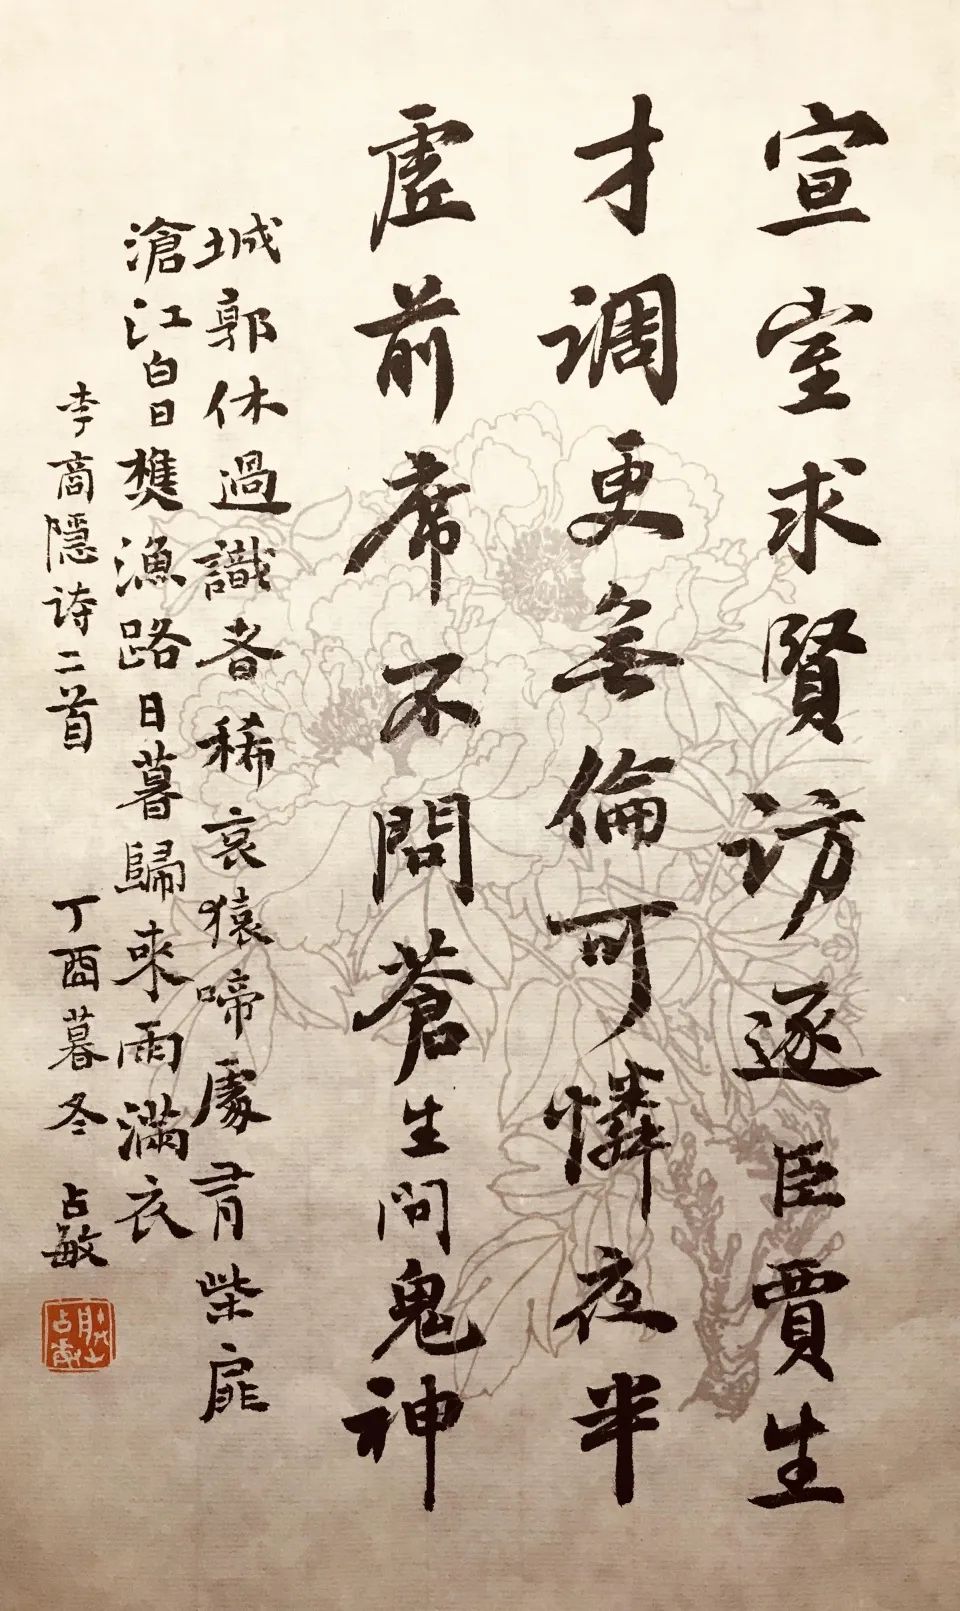 宣室求賢訪逐臣賈生
才调更無倫可憐夜半
虛前席不問蒼生问鬼神
城郭休過識者稀哀猿啼處有柴扉
滄江白日樵漁路日暮歸來雨滿衣
李商隱诗二首 丁酉暮冬 占敏